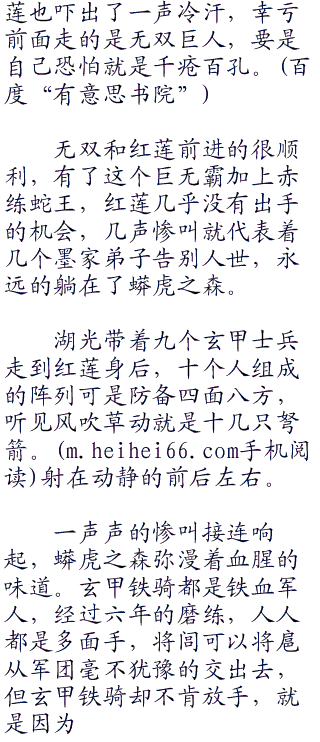 莲也吓出了一声冷汗，幸亏
前面走的是无双巨人，要是
自己恐怕就是千疮百孔。(百
度“有意思书院”)
无双和红莲前进的很顺
利，有了这个巨无霸加上赤
练蛇王，红莲几乎没有出手
的机会，几声惨叫就代表着
几个墨家弟子告别人世，永
远的躺在了蟒虎之森。
湖光带着九个玄甲士兵
走到红莲身后，十个人组成
的阵列可是防备四面八方，
听见风吹草动就是十几只弩
箭。(m.heihei66.com手机阅
读)射在动静的前后左右。
一声声的惨叫接连响
起，蟒虎之森弥漫着血腥的
味道。玄甲铁骑都是铁血军
人，经过六年的磨练，人人
都是多面手，将闾可以将扈
从军团毫不犹豫的交出去，
但玄甲铁骑却不肯放手，就
是因为